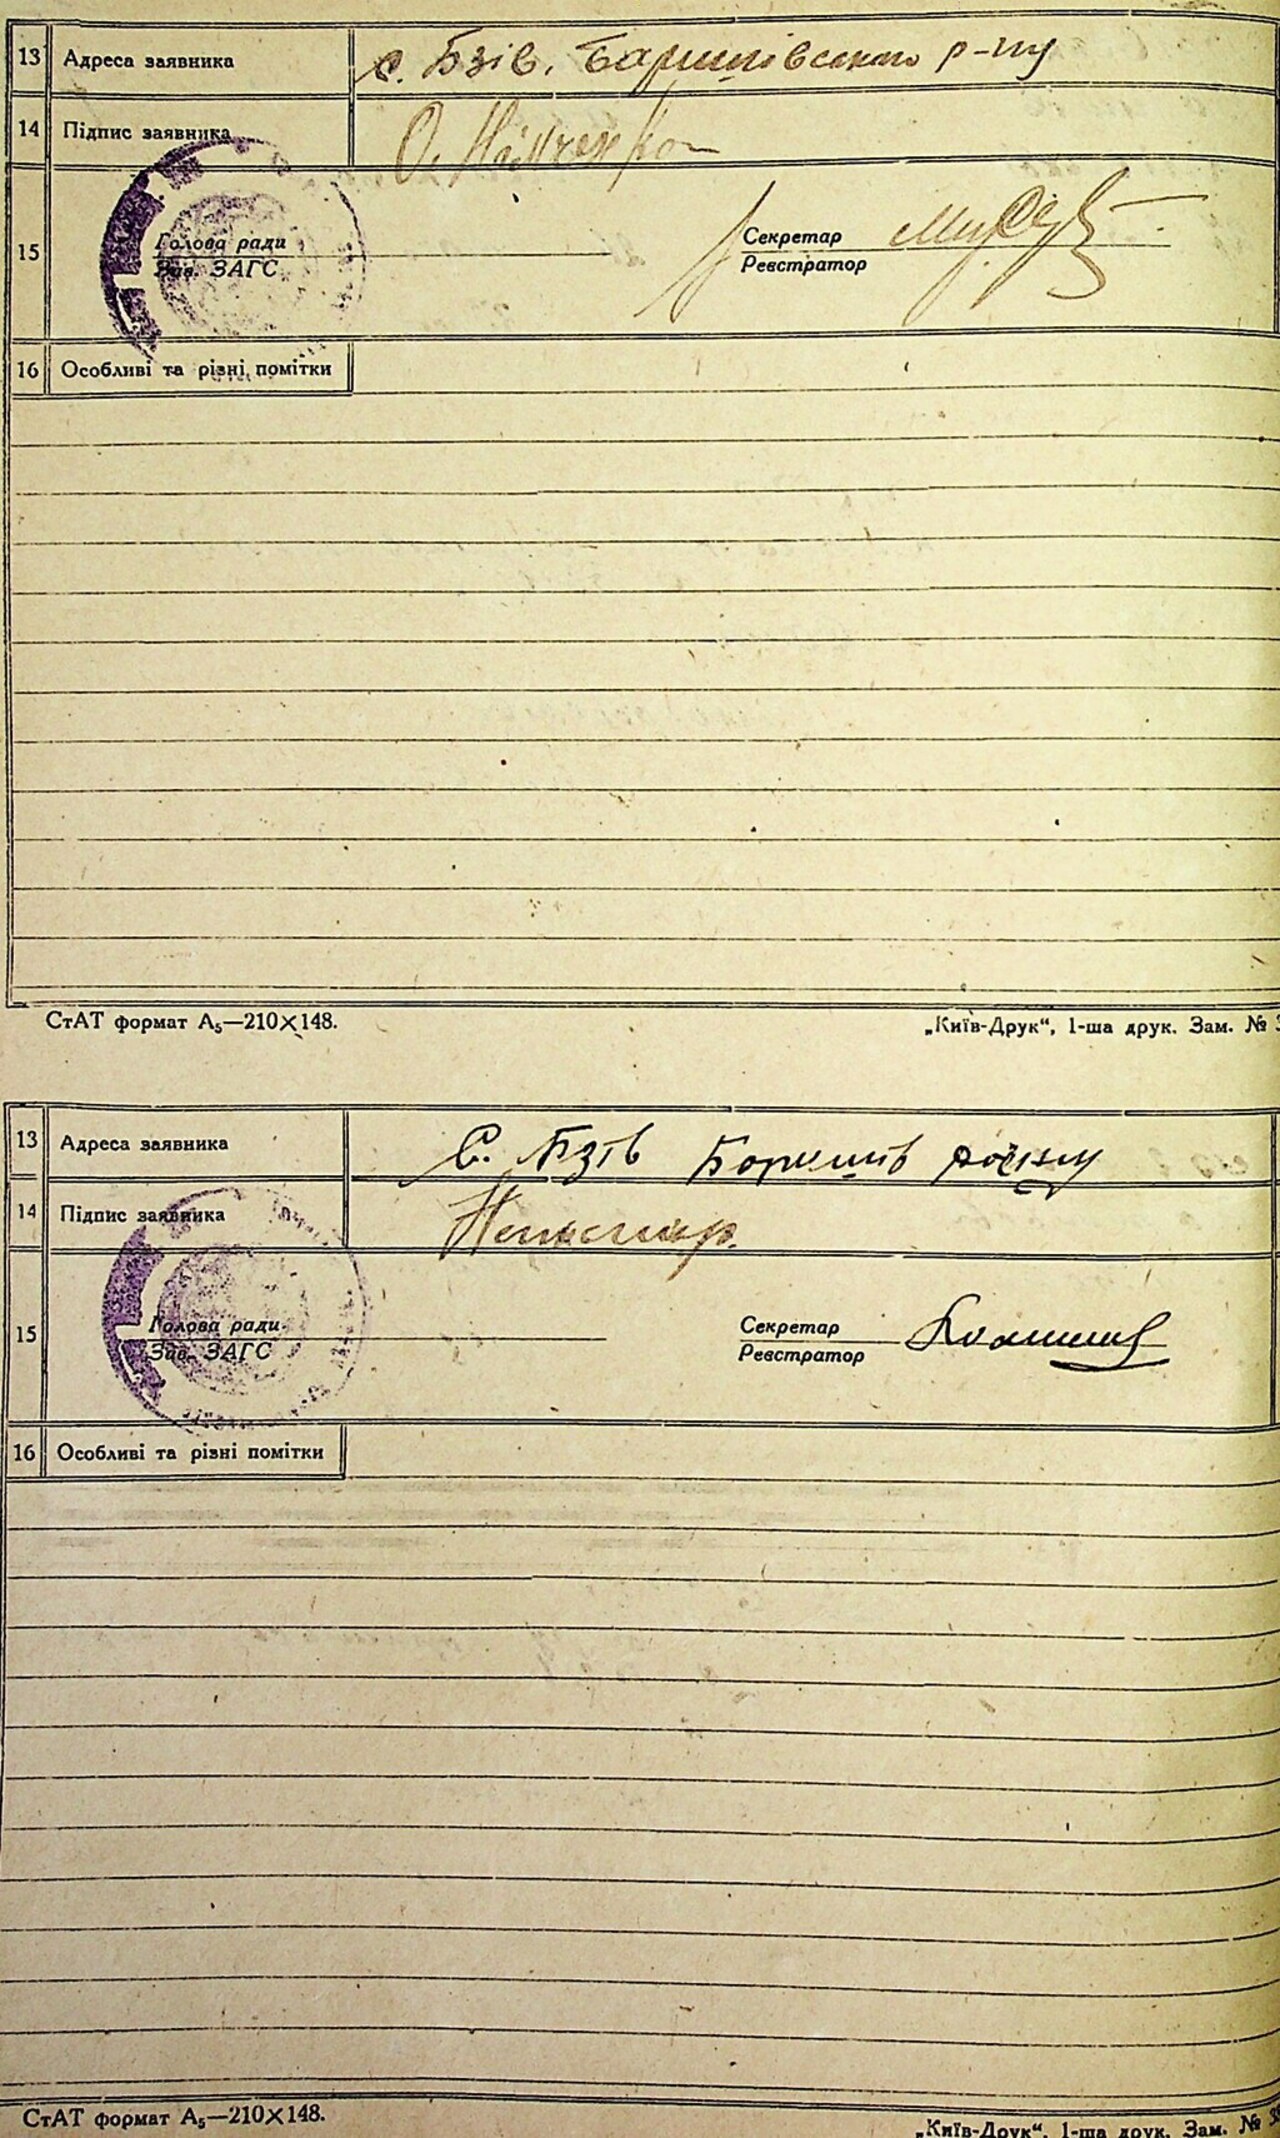 13 Адреса заявника с. Бзів. Баришівського р-ну
14 Підпис заявника О.
15 Голова ради Секретар
Зав. ЗАГС Реєстратор
16 Особливі та різні помітки
СтАТ формат А₅—210×148. „Київ-Друк“, 1-ша друк. Зам. №
13 Адреса заявника С. Бзів
14 Підпис заявника
15 Голова ради Секретар
Зав. ЗАГС Реєстратор
16 Особливі та різні помітки
СтАТ формат А₅—210×148. „Київ-Друк“, 1-ша друк. Зам. №